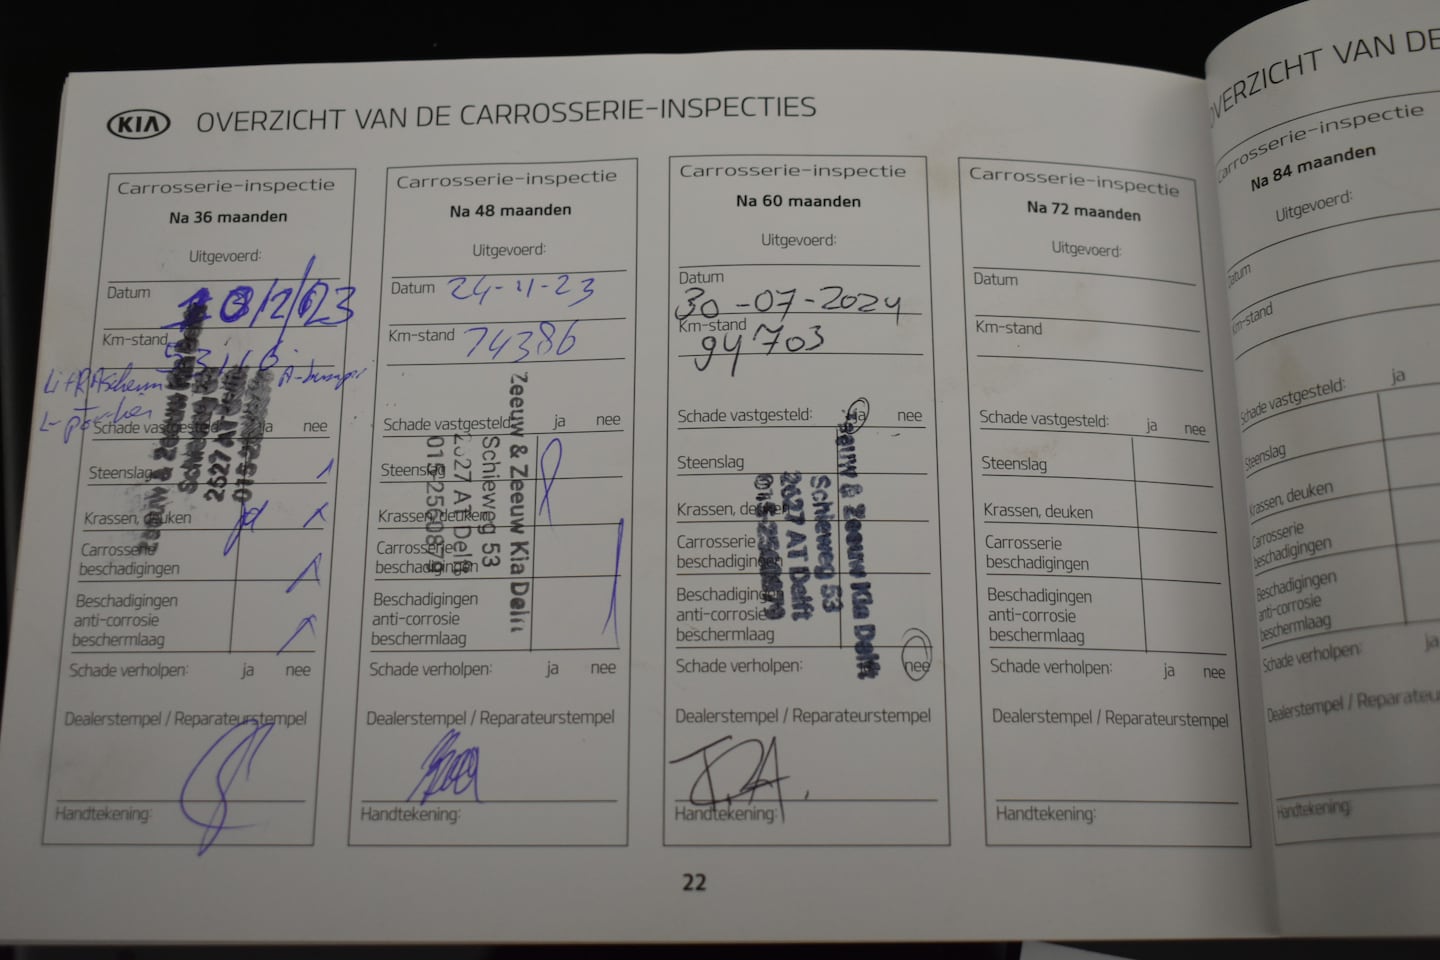 KIA OVERZICHT VAN DE CARROSSERIE-INSPECTIES
Carrosserie-inspectie
Na 36 maanden
Uitgevoerd:
Datum
Km-stand
Schade vastgesteld: ja nee
Steenslag
Krassen, deuken
Carrosserie
beschadigingen
Beschadigingen
anti-corrosie
beschermlaag
Schade verholpen: ja nee
Dealerstempel / Reparateurstempel
Handtekening:
Zeeuw & Zeeuw
2527 AT Delft
Carrosserie-inspectie
Na 48 maanden
Uitgevoerd:
Datum 24-11-23
Km-stand 74386
Schade vastgesteld: ja nee
Steenslag
Krassen, deuken
Carrosserie
beschadigingen
Beschadigingen
anti-corrosie
beschermlaag
Schade verholpen: ja nee
Dealerstempel / Reparateurstempel
Handtekening:
Zeeuw & Zeeuw Kia Delft
Schieweg 53
2627 AT Delft
015-2560879
Carrosserie-inspectie
Na 60 maanden
Uitgevoerd:
Datum
30-07-2024
Km-stand
94703
Schade vastgesteld: ja nee
Steenslag
Krassen, deuken
Carrosserie
beschadigingen
Beschadigingen
anti-corrosie
beschermlaag
Schade verholpen: nee
Dealerstempel / Reparateurstempel
Handtekening:
Zeeuw & Zeeuw Kia Delft
Schieweg 53
2627 AT Delft
015-2560879
Carrosserie-inspectie
Na 72 maanden
Uitgevoerd:
Datum
Km-stand
Schade vastgesteld: ja nee
Steenslag
Krassen, deuken
Carrosserie
beschadigingen
Beschadigingen
anti-corrosie
beschermlaag
Schade verholpen: ja nee
Dealerstempel / Reparateurstempel
Handtekening:
22
OVERZICHT VAN DE
Carrosserie-inspectie
Na 84 maanden
Uitgevoerd:
Datum
Km-stand
Schade vastgesteld: ja
Steenslag
Krassen, deuken
Carrosserie
beschadigingen
Beschadigingen
anti-corrosie
beschermlaag
Schade verholpen: ja
Dealerstempel / Reparateurs
Handtekening: